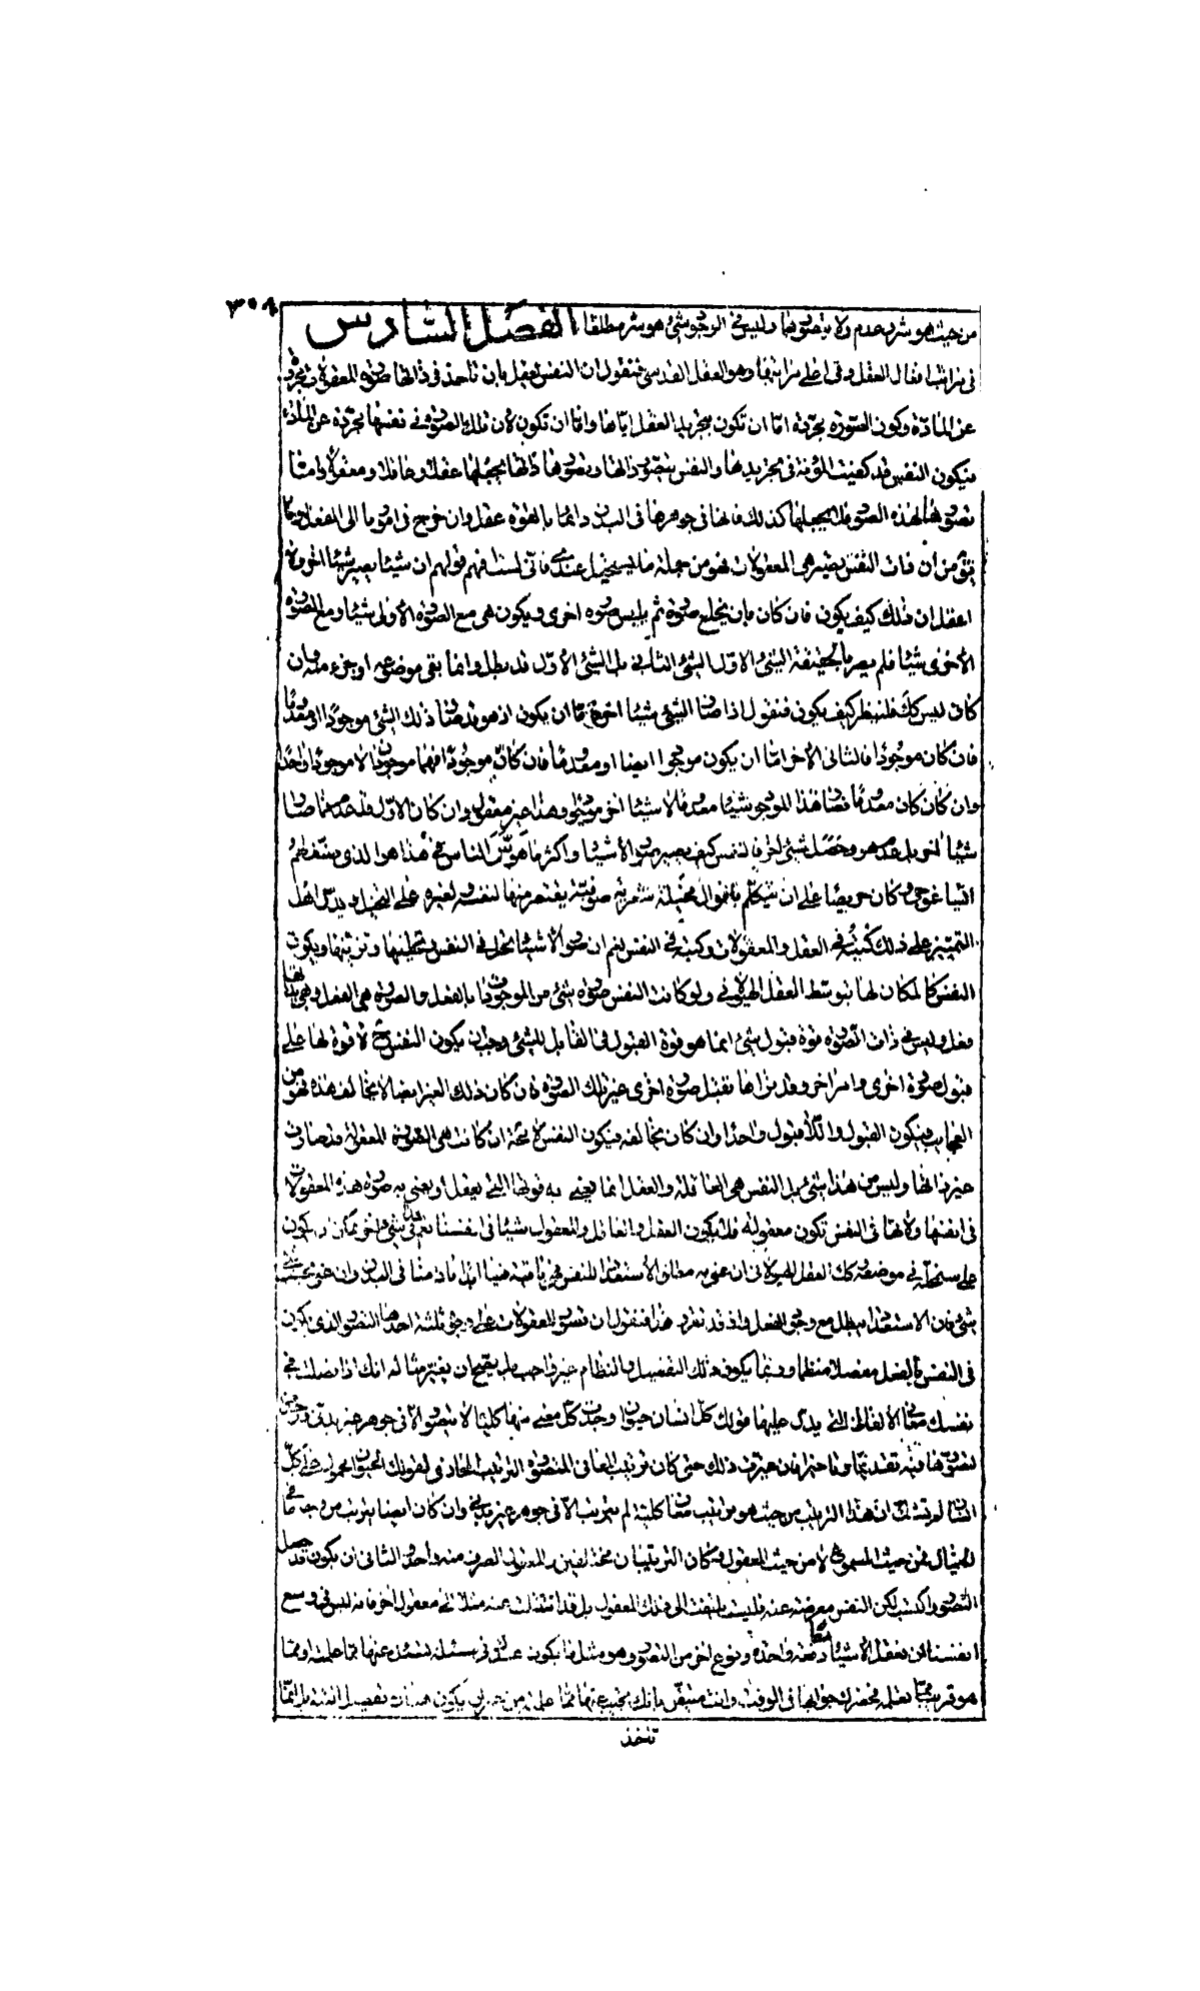 ٣٥٨
من حيث هو شر وعدم ولا يتصورهما وليس في الوجود شئ هو شر مطلقا الفصل السادس
في مراتب افعال العقل وفي اعلى مراتبها وهو العقل القدسي فنقول ان النفس تعقل بان تاخذ في ذاتها صورة المعقولات مجردة
عن المادة وكون الصورة مجردة اما ان تكون بتجريد العقل اياها واما ان تكون لأن تلك الصورة في نفسها مجردة عن المادة
فيكون النفس قد كفيت المؤنة في تجريدها والنفس يتصور ذاتها وتصورها ذاتها يجعلها عقلا وعاقلا ومعقولا واما
تصورها لهذه الصور فلا يجعلها كذلك فانها في جوهرها في البدن دائما بالقوة عقل وان خرج في امور ما الى الفعل وما
يق من ان ذات النفس يصير هي المعقولات فهو من جملة ما يستحيل عندي فاني لست افهم قولهم ان شيئا يصير شيئا اخر ولا
اعقل ان ذلك كيف يكون فان كان بان يخلع صورة ثم يلبس صورة اخرى ويكون هي مع الصورة الأولى شيئا ومع الصورة
الأخرى شيئا فلم يصر بالحقيقة الشئ الاول الشئ الثاني بل الشئ الأول قد بطل وانما بقي موضوعه او جزء منه وان
كان ليس كك فلننظر كيف يكون فنقول اذا صار الشئ شيئا اخر فاما ان يكون اذ هو قد صار ذلك الشئ موجودا او معدوما
فان كان موجودا فالثاني الأخر اما ان يكون موجودا ايضا او معدوما فان كان موجودا فهما موجودان لا موجود واحد
وان كان كان معدوما فقد صار هذا الموجود شيئا معدوما لا شيئا اخر موجودا وهذا غير معقول وان كان الاول قد عدم فما صار
شيئا اخر بل عدم هو وحصل شئ اخر فالنفس كيف يصير صور الأشياء واكثر ما هوس الناس في هذا هو الذي صنف لهم
ايساغوجي وكان حريصا على ان يتكلم باقوال مخيلة شعرية صوفية يقتصر منها لنفسه ولغيره على التخيل ويدل اهل
التمييز على ذلك كتبه في العقل والمعقولات وكتبه في النفس نعم ان صور الأشياء تحل في النفس وتحليها وتزينها ويكون
النفس كالمكان لها بتوسط العقل الهيولاني ولو كانت النفس صورة شئ من الموجودات بالفعل والصورة هي الفعل وهي بذاتها
فعل وليس في ذات الصورة قوة قبول شئ انما هو قوة القبول في القابل للشئ وجب ان يكون النفس ح لا قوة لها على
قبول صورة اخرى وامر اخر وقد نراها تقبل صورة اخرى غير تلك الصورة فان كان ذلك الغير ايضا لا يخالف هذه فهو من
العجايب فيكون القبول واللاقبول واحدا وان كان يخالفه فيكون النفس لا محة ان كانت هي الصورة المعقولة قد صارت
غير ذاتها وليس من هذا شئ بل النفس هي العاقلة والعقل انما يعنى به قوتها التي بها يعقل او يعنى به صورة هذه المعقولات
في انفسها ولأنها في النفس تكون معقولة فلا يكون العقل والعاقل والمعقول شيئا في انفسنا نعم هذا في شئ اخر يمكن ان يكون
على سنلمحه في موضعه وكك العقل الهيولاني ان عني به مطلق الأستعداد للنفس فهي باقية فينا ابدا ما دمنا في البدن وان عني بحسب شئ
شئ فان الاستعداد يبطل مع وجود الفعل واذ قد تقرر هذا فنقول ان تصور المعقولات على وجوه ثلثة احدها التصور الذي يكون
في النفس بالفعل مفصلا منظما وربما يكون ذلك التفصيل والنظام غير واجب بل يصح ان يغير مثاله انك اذا فصلت في
نفسك معاني الألفاظ التي يدل عليها قولك كل انسان حيوان وجدت كل معنى منها كليا لا يتصور الا في جوهر غير بدني ووجدت
لتصورها فيه تقديما وتاخيرا فان غيرت ذلك حتى كان ترتيب المعاني المتصورة الترتيب المحاذي لقولك الحيوان محمول على كل
انسان لم تشك ان هذا الترتيب من حيث هو ترتيب معان كلية لم يترتب الا في جوهر غير بدني وان كان ايضا يترتب من وجه ما في
الخيال فمن حيث المسموع لا من حيث المعقول وكان الترتيبان مختلفين والمعقول الصرف منه واحد والثاني ان يكون قد حصل
التصور واكتسب لكن النفس معرضة عنه فليست يلتفت الى ذلك المعقول بل قد انتقلت عنه مثلا الى معقول اخر فانه ليس في وسع
انفسنا ان نعقل الأشياء معا دفعة واحدة ونوع اخر من التصور وهو مثل ما يكون عندك في مسئلة تسئل عنها مما علمته او مما
هو قريب مما تعلمه فحضرك جوابها في الوقت وانت متيقن بانك تجيب عنها مما علمته من غير ان يكون هناك تفصيل البتة بل انما
تاخذ